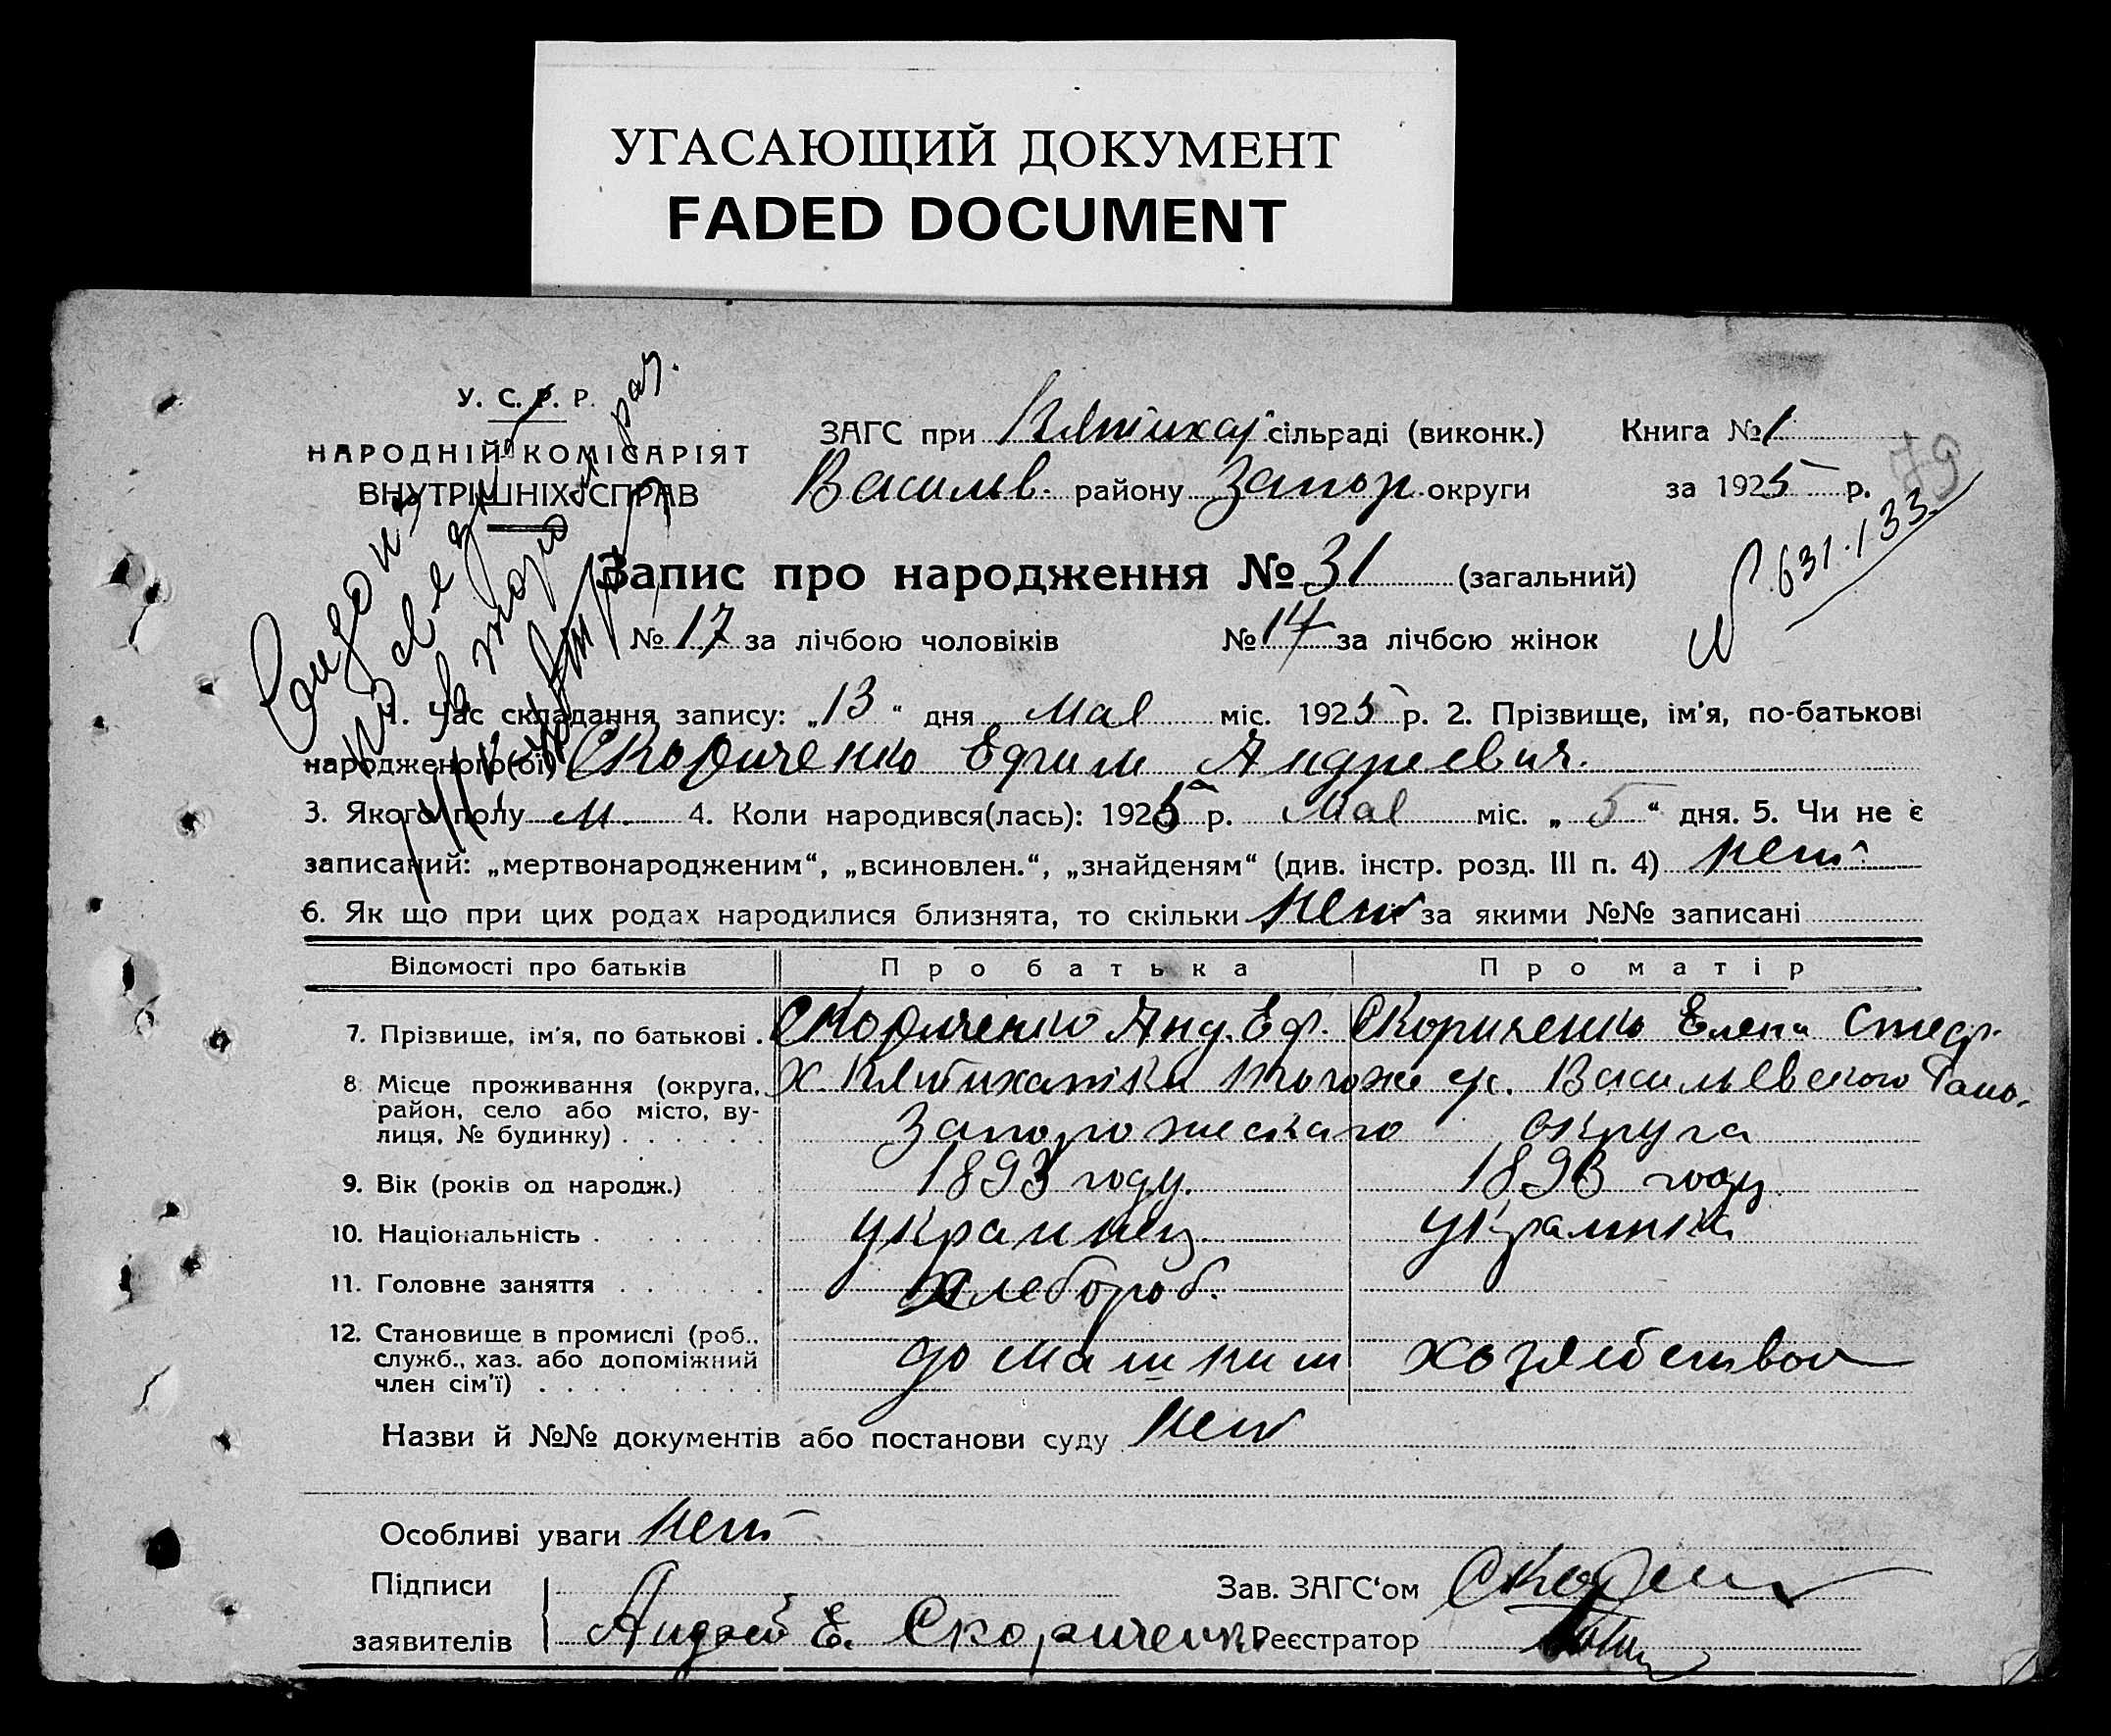 УГАСАЮЩИЙ ДОКУМЕНТ
FADED DOCUMENT
У. С. Р. Р.
НАРОДНІЙ КОМІСАРІЯТ
ВНУТРІШНІХ СПРАВ
ЗАГС при Пятихат сільраді (виконк.) Книга № 1
79
Васильв. району Запор. округи за 1925 р.
631.133
Запис про народження № 31 (загальний)
№ 17 за лічбою чоловіків № 14 за лічбою жінок
1. Час складання запису: „13“ дня Мая міс. 1925 р. 2. Прізвище, ім'я, по-батькові
народженого(ої) Скориченко Ефим Андреевич.
3. Якого полу м. 4. Коли народився(лась): 1925 р. Мая міс. „5“ дня. 5. Чи не є
записаний: „мертвонародженим“, „всиновлен.“, „знайденям“ (див. інстр. розд. III п. 4) нет
6. Як що при цих родах народилися близнята, то скільки нет за якими №№ записані
Відомості про батьків Про батька Про матір
7. Прізвище, ім'я, по батькові . Скориченко Анд. Еф. Скориченко Елена Стеф.
8. Місце проживання (округа, район, село або місто, вулиця, № будинку) . . . . . . х. Пятихатки того же с. Васильевского
Запорожскаго округа
9. Вік (років од народж.) 1893 году. 1893 году
10. Національність . украинец. украинка
11. Головне заняття хлебороб.
12. Становище в промислі (роб., служб., хаз. або допоміжний член сім'ї) . домашним хозяйством
Назви й №№ документів або постанови суду нет
Особливі уваги нет
Підписи Зав. ЗАГС'ом
заявителів Андрей Е. Скориченко Реєстратор